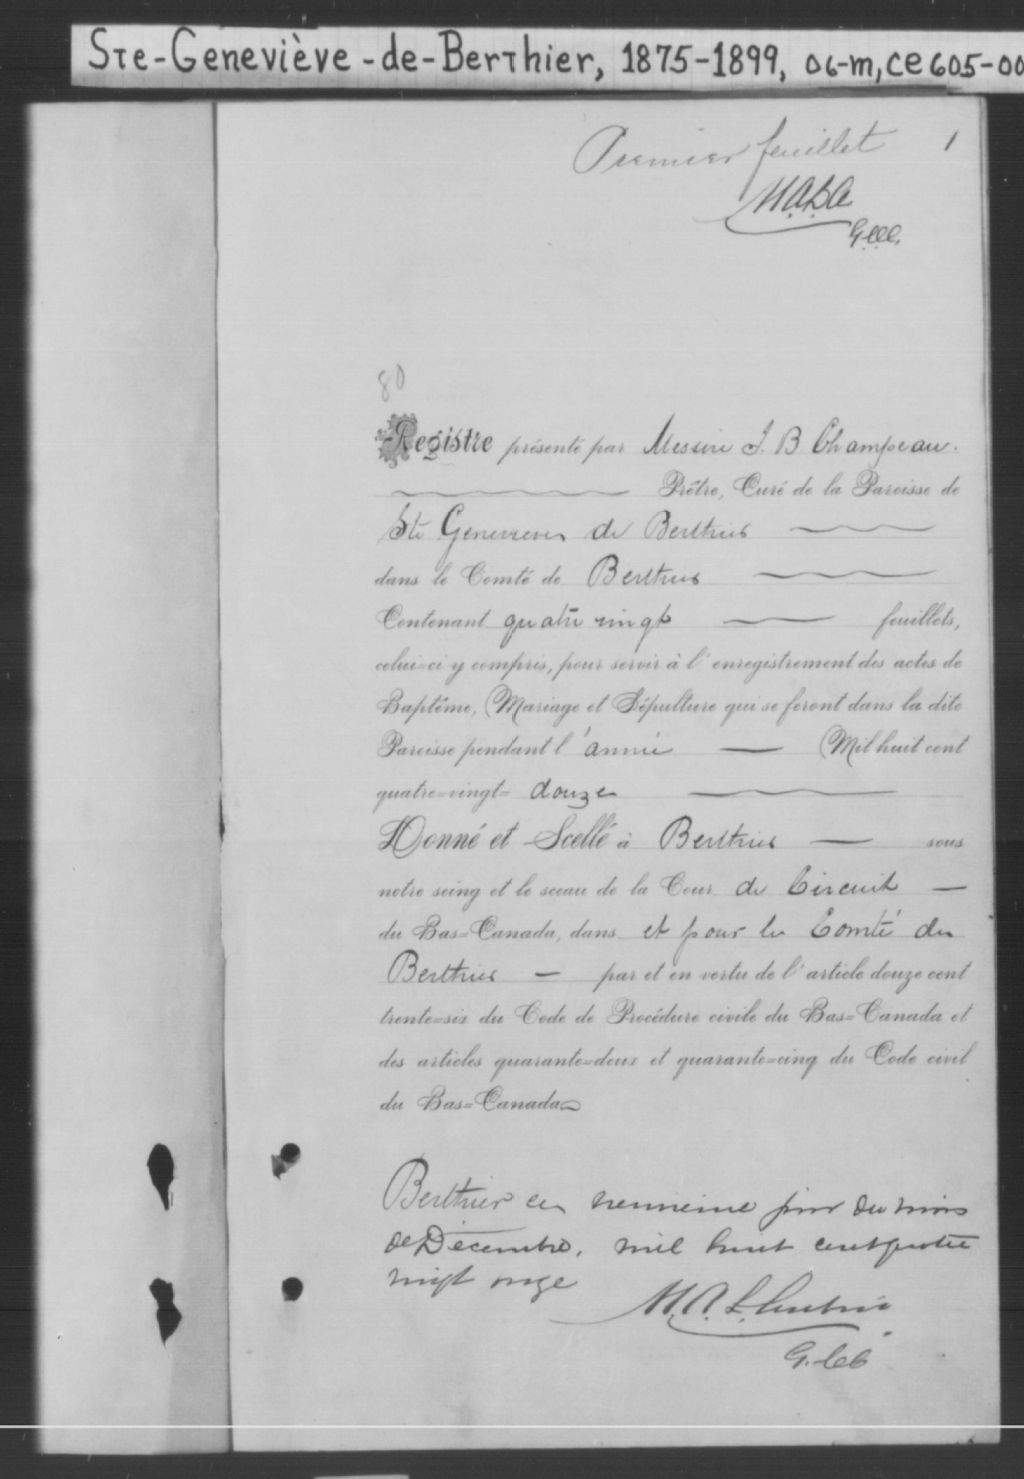 Ste-Geneviève-de-Berthier, 1875-1899, 06-m, ce605-00
Premier feuillet 1
80
Registre présenté par Messire J. B Champeau.
Prêtre, Curé de la Paroisse de
Ste Genevieve de Berthier
dans le Comté de Berthier
Contenant quatre vingt feuillets,
celui=ci y compris, pour servir à l'enregistrement des actes de
Baptême, Mariage et Sépulture qui se feront dans la dite
Paroisse pendant l'année Mil huit cent
quatre=vingt= douze
Donné et Scellé à Berthier sous
notre seing et le sceau de la Cour de Circuit
du Bas=Canada, dans et pour le Comté de
Berthier par et en vertu de l'article douze cent
trente=six du Code de Procédure civile du Bas=Canada et
des articles quarante=deux et quarante=cinq du Code civil
du Bas=Canada
Berthier ce neuvieme jour du mois
de Décembre, mil huit cent quatre
vingt onze
M. A. L.